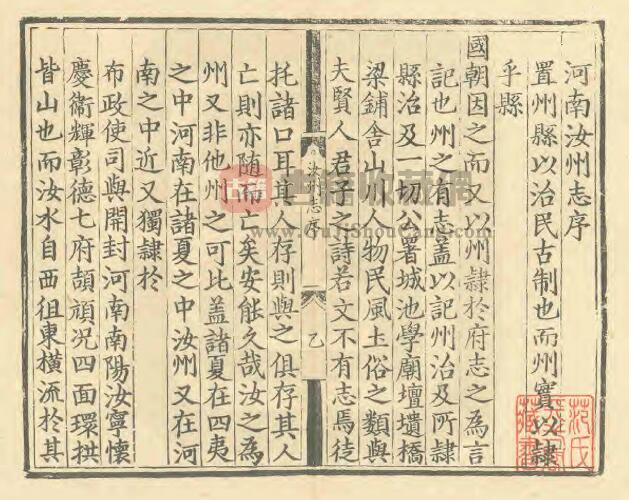 河南汝州志序
置州縣以治民古制也而州實以隸
乎縣
國朝因之而又以州隸於府志之為言
記也州之有志蓋以記州治及所隸
縣治及一切公署城池學廟壇壝橋
梁鋪舍山川人物民風土俗之類與
夫賢人君子之詩若文不有志焉徒
汝州志序
乙
托諸口耳其人存則與之俱存其人
亡則亦随而亡矣安能久哉汝之為
州又非他州之可比蓋諸夏在四夷
之中河南在諸夏之中汝州又在河
南之中近又獨隸於
布政使司與開封河南南陽汝寧懷
慶衛輝彰德七府頡頏况四面環拱
皆山也而汝水自西徂東橫流於其
范氏
藏書
古籍
书籍收藏網
www.GuJiShouCang.com